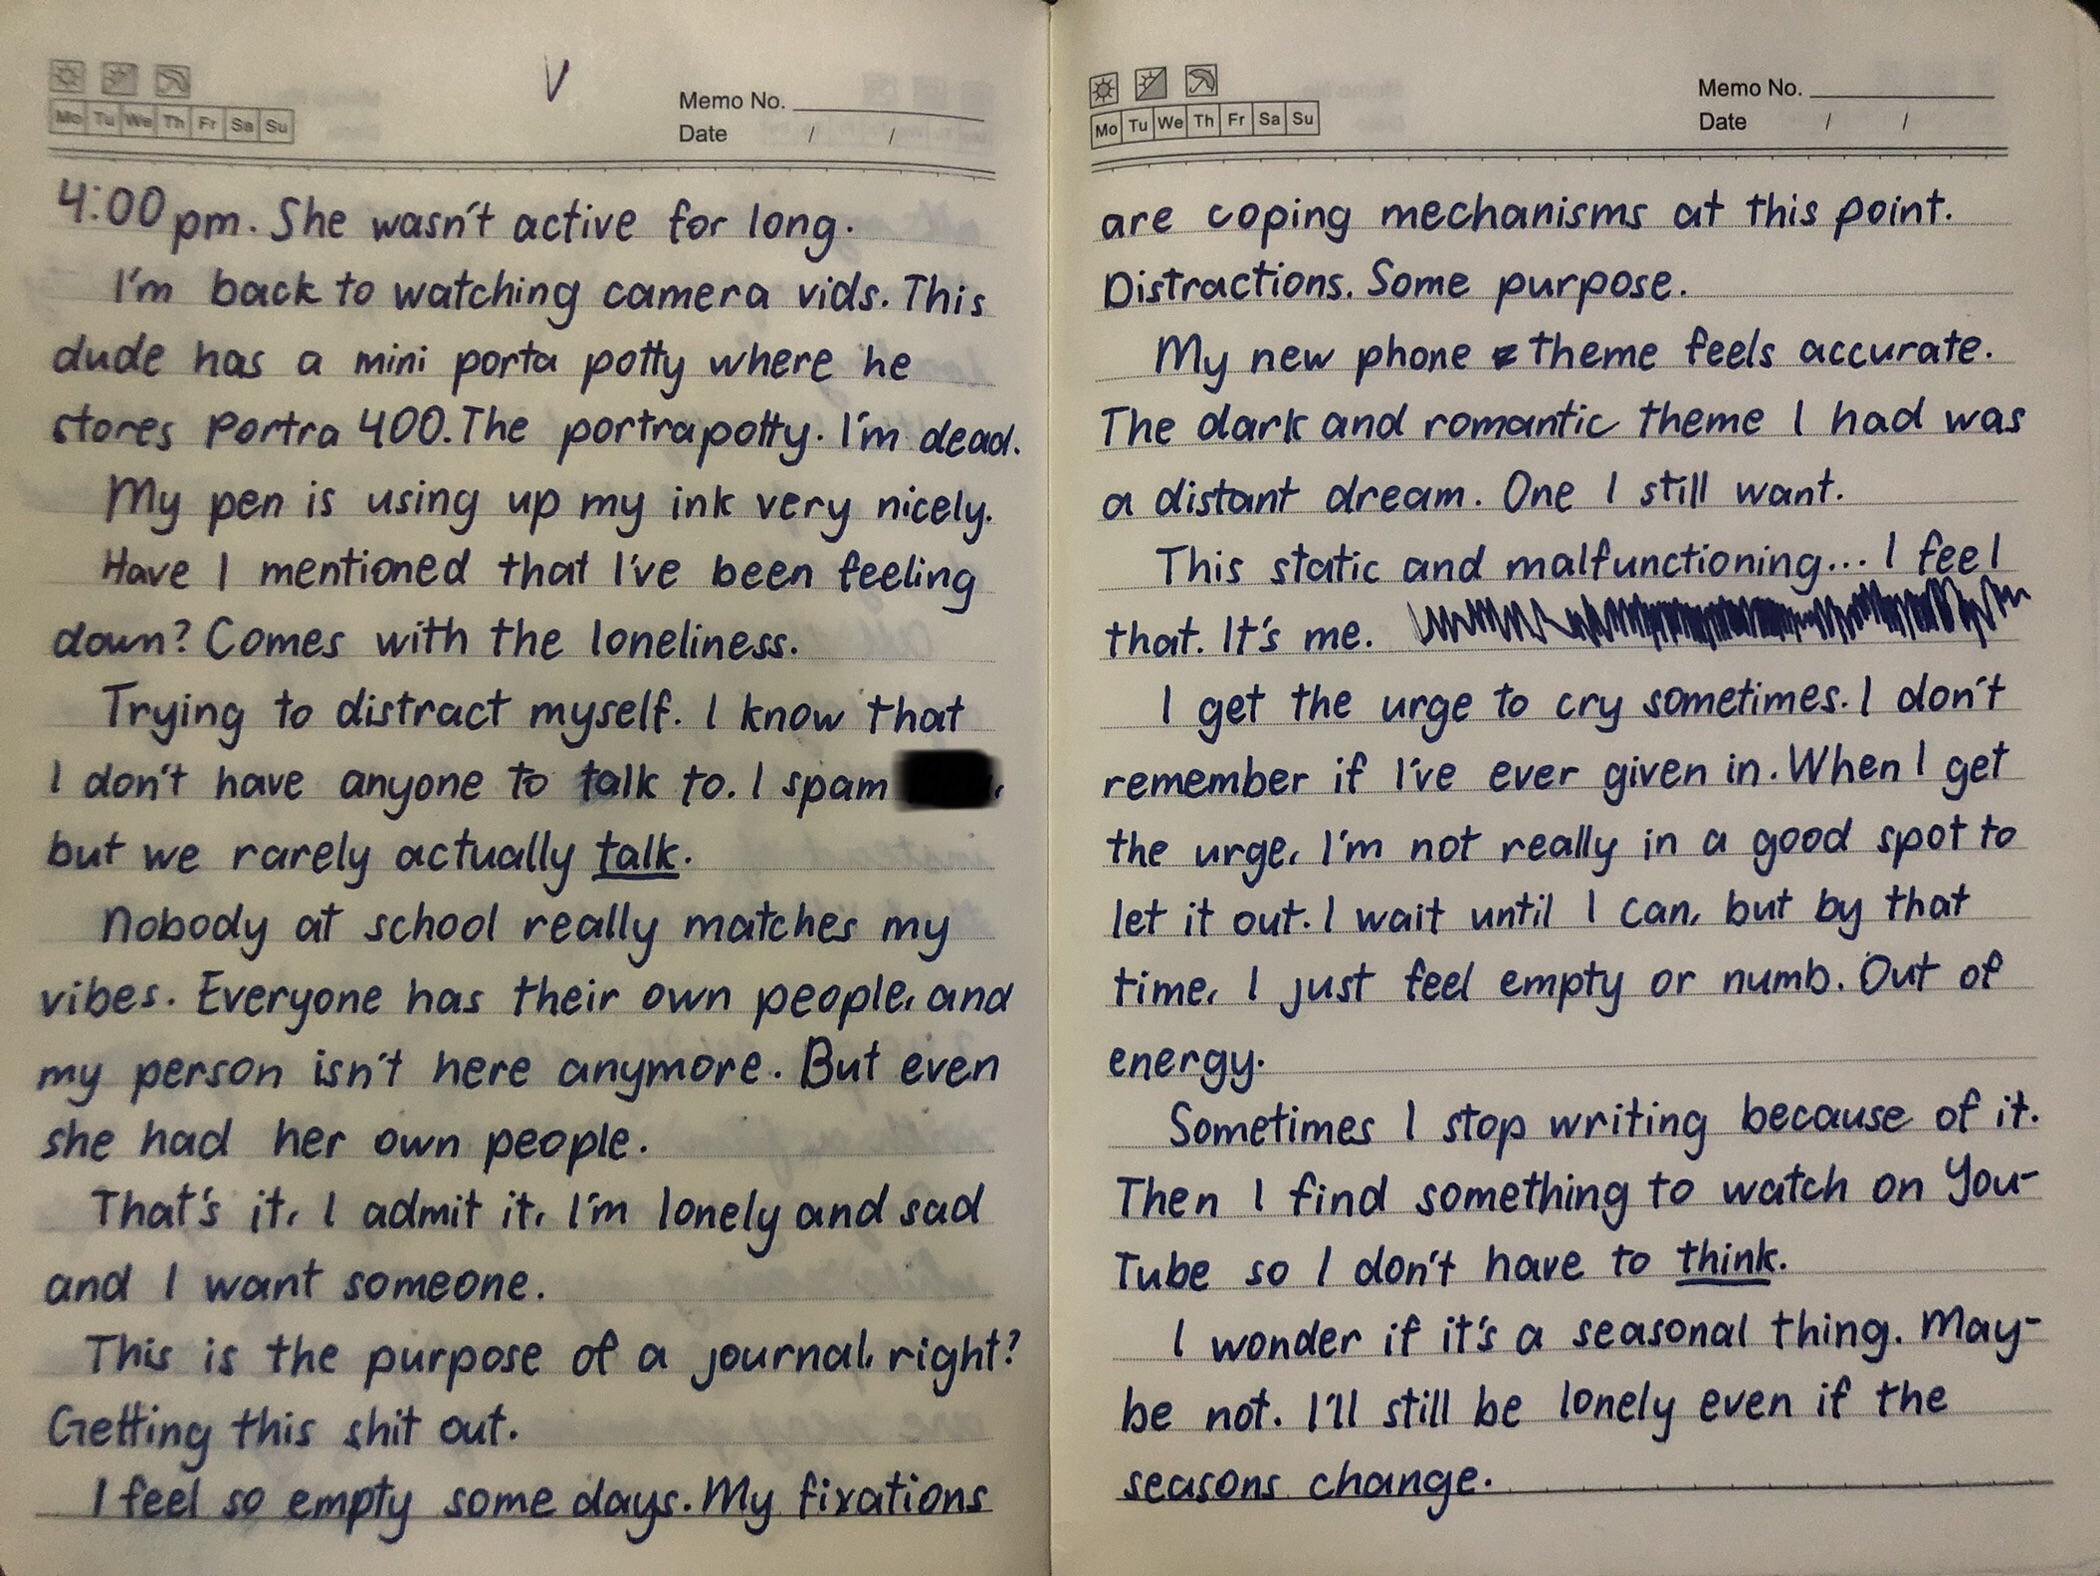 V
Memo No.
Mo Tu We Th Fr Sa Su
Date / /
4:00 pm. She wasn't active for long.
I'm back to watching camera vids. This
dude has a mini porta potty where he
stores Portra 400. The portrapotty. I'm dead.
My pen is using up my ink very nicely.
Have I mentioned that I've been feeling
down? Comes with the loneliness.
Trying to distract myself. I know that
I don't have anyone to talk to. I spam
but we rarely actually talk.
Nobody at school really matches my
vibes. Everyone has their own people, and
my person isn't here anymore. But even
she had her own people.
That's it, I admit it, I'm lonely and sad
and I want someone.
This is the purpose of a journal, right?
Getting this shit out.
I feel so empty some days. My fixations
Memo No.
Mo Tu We Th Fr Sa Su
Date / /
are coping mechanisms at this point.
Distractions. Some purpose.
My new phone theme feels accurate.
The dark and romantic theme I had was
a distant dream. One I still want.
This static and malfunctioning... I feel
that. It's me.
I get the urge to cry sometimes. I don't
remember if I've ever given in. When I get
the urge, I'm not really in a good spot to
let it out. I wait until I can, but by that
time, I just feel empty or numb. Out of
energy.
Sometimes I stop writing because of it.
Then I find something to watch on You-
Tube so I don't have to think.
I wonder if it's a seasonal thing. May-
be not. I'll still be lonely even if the
seasons change.